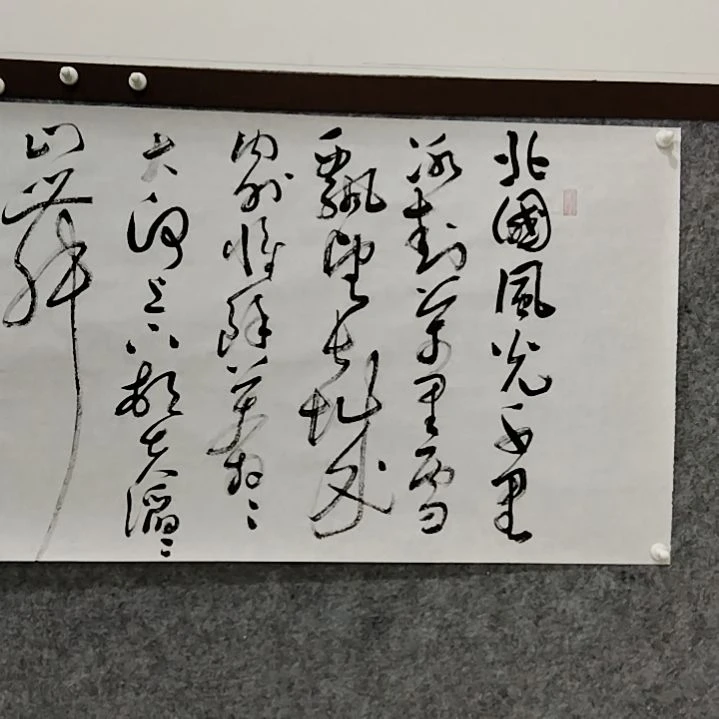 北國風光千里
冰封萬里雪
飄望長城
内外惟餘莽〻
大河上下頓失滔〻
山舞